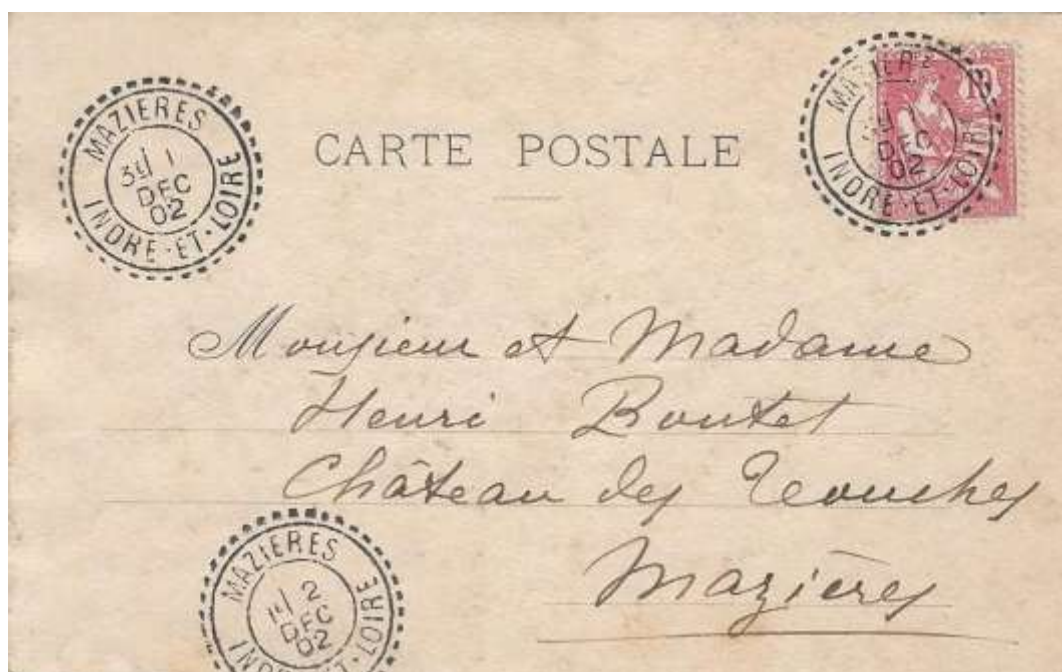 MAZIERES
1
DEC
02
INDRE-ET-LOIRE
CARTE POSTALE
MAZIER
10
DEC
02
INDRE-ET-LOIRE
Monsieur et Madame
Henri Boutet
Château des Touches
Mazières
MAZIERES
2
DEC
02
LOIRE